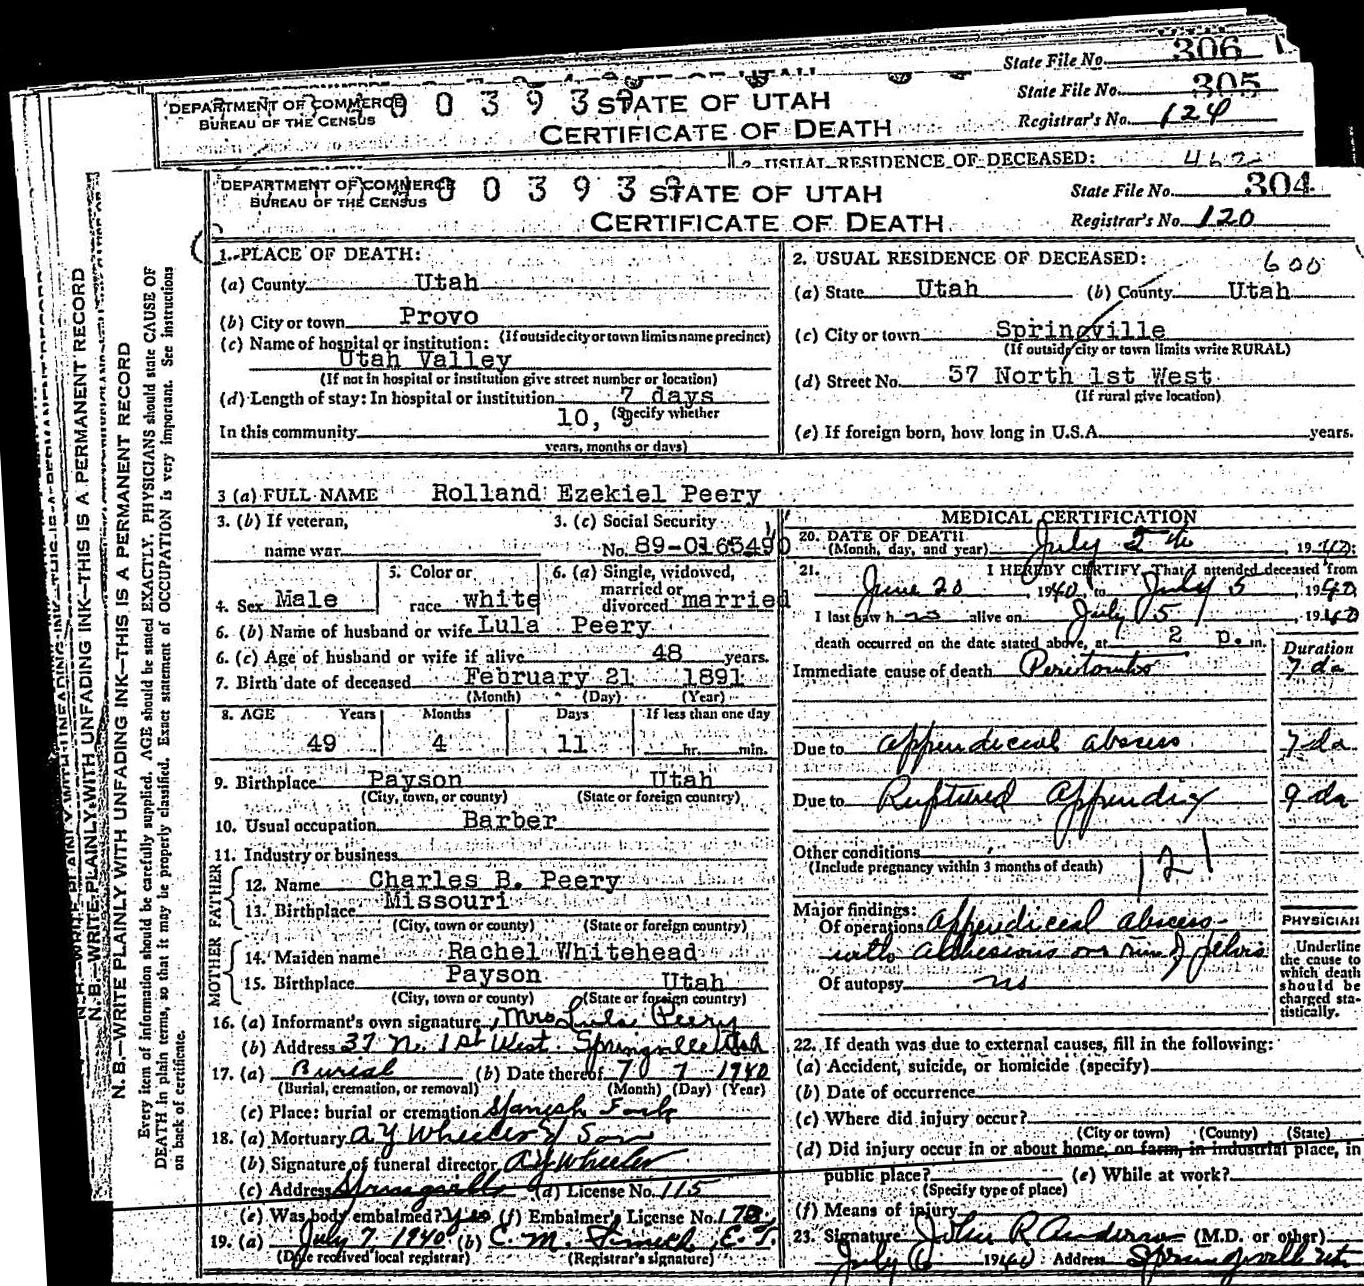 State File No. 306
State File No. 305
DEPARTMENT OF COMMERCE
BUREAU OF THE CENSUS
STATE OF UTAH
CERTIFICATE OF DEATH
Registrar's No. 124
2. USUAL RESIDENCE OF DECEASED:
DEPARTMENT OF COMMERCE
BUREAU OF THE CENSUS
0 0 3 9 3
STATE OF UTAH
CERTIFICATE OF DEATH
State File No. 304
Registrar's No. 120
N. B.—WRITE PLAINLY WITH UNFADING INK—THIS IS A PERMANENT RECORD
N. B.—WRITE PLAINLY WITH UNFADING INK—THIS IS A PERMANENT RECORD
Every item of information should be carefully supplied. AGE should be stated EXACTLY. PHYSICIANS should state CAUSE OF
DEATH in plain terms, so that it may be properly classified. Exact statement of OCCUPATION is very important. See instructions
on back of certificate.
1. PLACE OF DEATH:
(a) County Utah
(b) City or town Provo
(If outside city or town limits name precinct)
(c) Name of hospital or institution:
Utah Valley
(If not in hospital or institution give street number or location)
(d) Length of stay: In hospital or institution 7 days
10, 9 (Specify whether
In this community
years, months or days)
2. USUAL RESIDENCE OF DECEASED: 600
(a) State Utah (b) County Utah
(c) City or town Springville
(If outside city or town limits write RURAL)
(d) Street No. 37 North 1st West
(If rural give location)
(e) If foreign born, how long in U.S.A. years.
3 (a) FULL NAME Rolland Ezekiel Peery
3. (b) If veteran,
name war
3. (c) Social Security
No.
4. Sex Male
5. Color or
race white
6. (a) Single, widowed,
married or
divorced married
6. (b) Name of husband or wife Lula Peery
6. (c) Age of husband or wife if alive 48 years.
7. Birth date of deceased February 21 1891
(Month) (Day) (Year)
8. AGE Years Months Days If less than one day
49 4 11 hr. min.
9. Birthplace Payson Utah
(City, town, or county) (State or foreign country)
10. Usual occupation Barber
11. Industry or business
FATHER
12. Name Charles B. Peery
13. Birthplace Missouri
(City, town or county) (State or foreign country)
MOTHER
14. Maiden name Rachel Whitehead
15. Birthplace Payson Utah
(City, town or county) (State or foreign country)
16. (a) Informant's own signature Mrs Lula Peery
(b) Address 37 N. 1st West. Springville Utah
17. (a) Burial (b) Date thereof 7 7 1940
(Burial, cremation, or removal) (Month) (Day) (Year)
(c) Place: burial or cremation Spanish Fork
18. (a) Mortuary A Y Wheeler & Son
(b) Signature of funeral director A Y Wheeler
(c) Address Springville (d) License No. 115
(e) Was body embalmed? yes (f) Embalmer's License No. 173
19. (a) July 7, 1940 (b) C. M. Smith
(Date received local registrar) (Registrar's signature)
MEDICAL CERTIFICATION
20. DATE OF DEATH
(Month, day, and year) July 5th, 1940
21. I HEREBY CERTIFY, That I attended deceased from
June 20, 1940, to July 5, 1940
I last saw h alive on July 5, 1940
death occurred on the date stated above, at 2 p. m.
Duration
Immediate cause of death Peritonitis 7 da
Due to appendiceal abscess 7 da
Due to Ruptured appendix 9 da
Other conditions
(Include pregnancy within 3 months of death)
121
Major findings:
Of operations appendiceal abscess-
with adhesions on rim of pelvis
Of autopsy no
PHYSICIAN
Underline
the cause to
which death
should be
charged sta-
tistically.
22. If death was due to external causes, fill in the following:
(a) Accident, suicide, or homicide (specify)
(b) Date of occurrence
(c) Where did injury occur?
(City or town) (County) (State)
(d) Did injury occur in or about home, on farm, in industrial place, in
public place? (e) While at work?
(Specify type of place)
(f) Means of injury
23. Signature John R Anderson (M.D. or other)
July 6 1940 Address Springville Ut